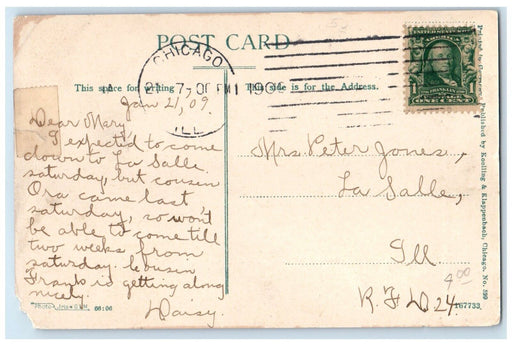 POST CARD
CHICAGO
7-
PM
190
ILL
UNITED STATES OF AMERICA
1
FRANKLIN
ONE CENT
This space for writing
This side is for the Address.
Jan 21, 09.
Dear Mary,
I expected to come
down to La Salle
saturday, but cousin
Ora came last
saturday, so won't
be able to come till
two weeks from
saturday. Cousin
Frank is getting along
nicely.
Daisy.
66:06
Mrs. Peter Jones,
La Salle,
Ill
R.F.D 24.
4 00
167733
Printed in Germany. Published by Koelling & Klappenbach, Chicago. No. 599